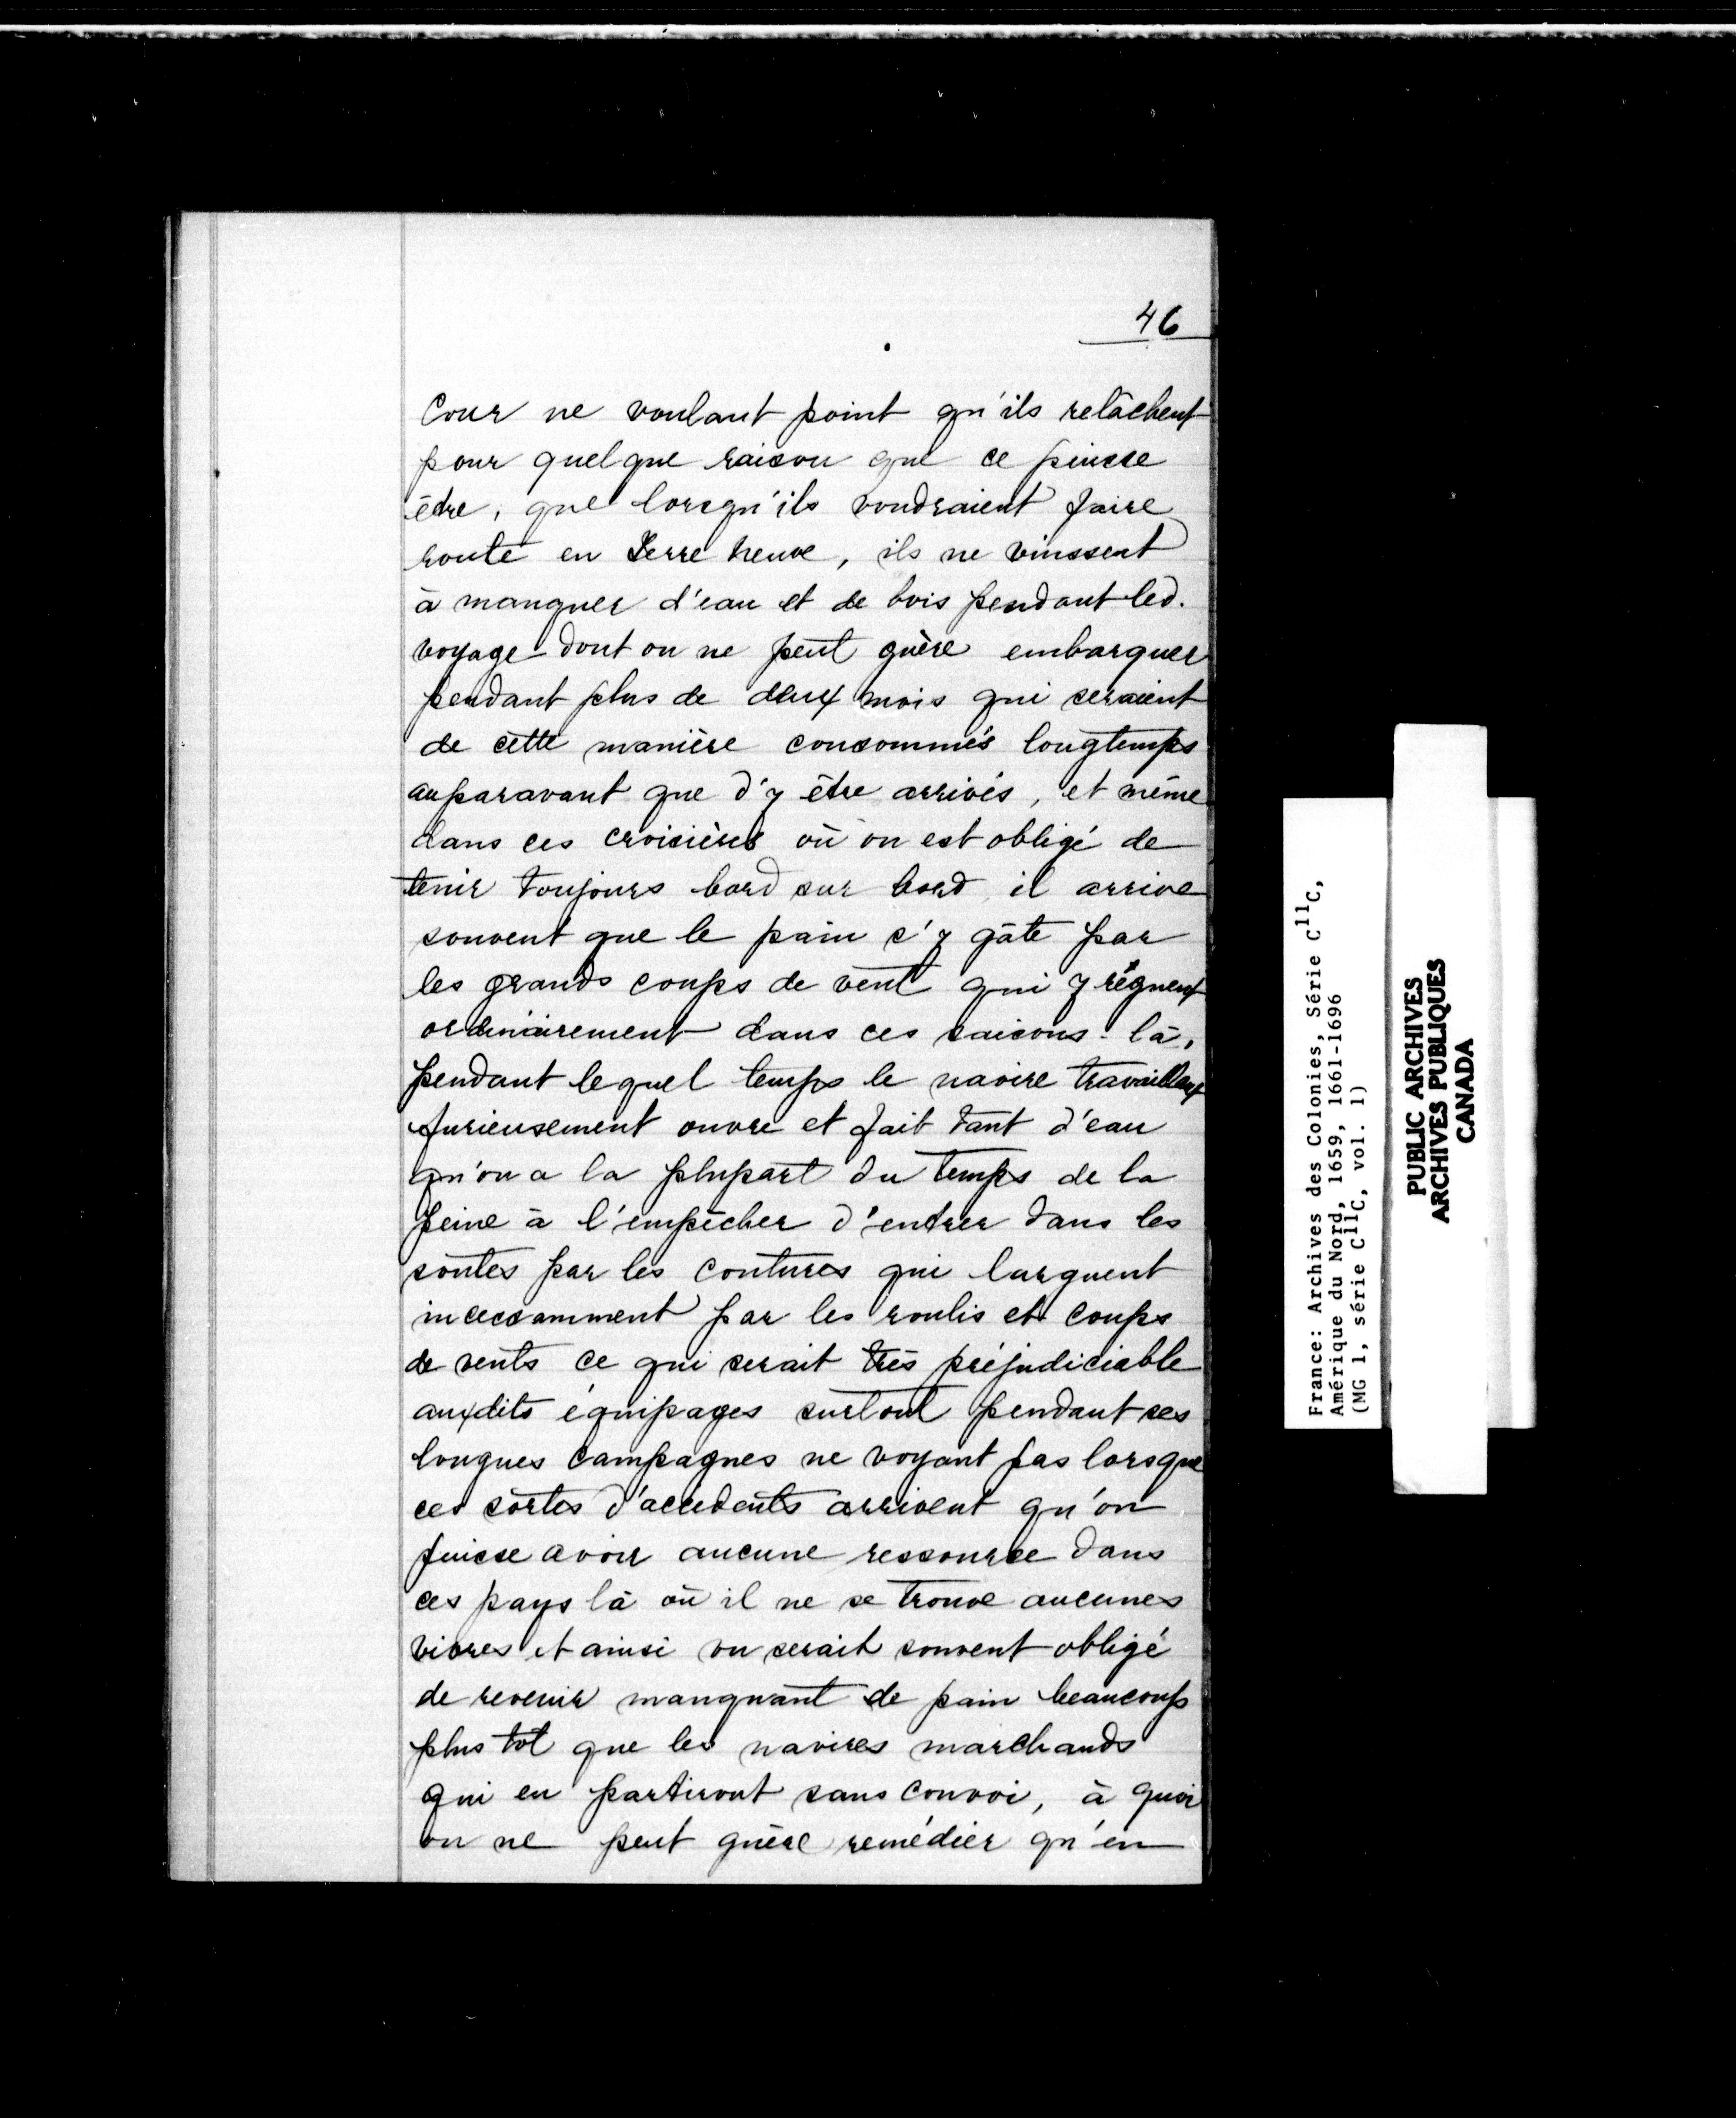 46
Cour ne voulant point qu'ils relâchent
pour quelque raison que ce puisse
être, que lorsqu'ils voudraient faire
route en Terre neuve, ils ne vinssent
à manquer d'eau et de bois pendant led.
voyage dont on ne peut guère embarquer
pendant plus de deux mois qui seraient
de cette manière consommés longtemps
auparavant que d'y être arrivés, et même
dans ces croisières où on est obligé de
tenir toujours bord sur bord, il arrive
souvent que le pain s'y gâte par
les grands coups de vent qui y règnent
ordinairement dans ces saisons-là,
pendant lequel temps le navire travaillant
furieusement ouvre et fait tant d'eau
qu'on a la plupart du temps de la
peine à l'empêcher d'entrer dans les
soutes par les coutures qui larguent
incessamment par les roulis et coups
de vents ce qui serait très préjudiciable
auxdits équipages surtout pendant ses
longues campagnes ne voyant pas lorsque
ces sortes d'accidents arrivent qu'on
puisse avoir aucune ressource dans
ces pays là où il ne se trouve aucunes
vivres et ainsi on serait souvent obligé
de revenir manquant de pain beaucoup
plus tôt que les navires marchands
qui en partiront sans convoi, à quoi
on ne peut guère remédier qu'en
France: Archives des Colonies, Série C11C,
Amérique du Nord, 1659, 1661-1696
(MG 1, série C11C, vol. 1)
PUBLIC ARCHIVES
ARCHIVES PUBLIQUES
CANADA